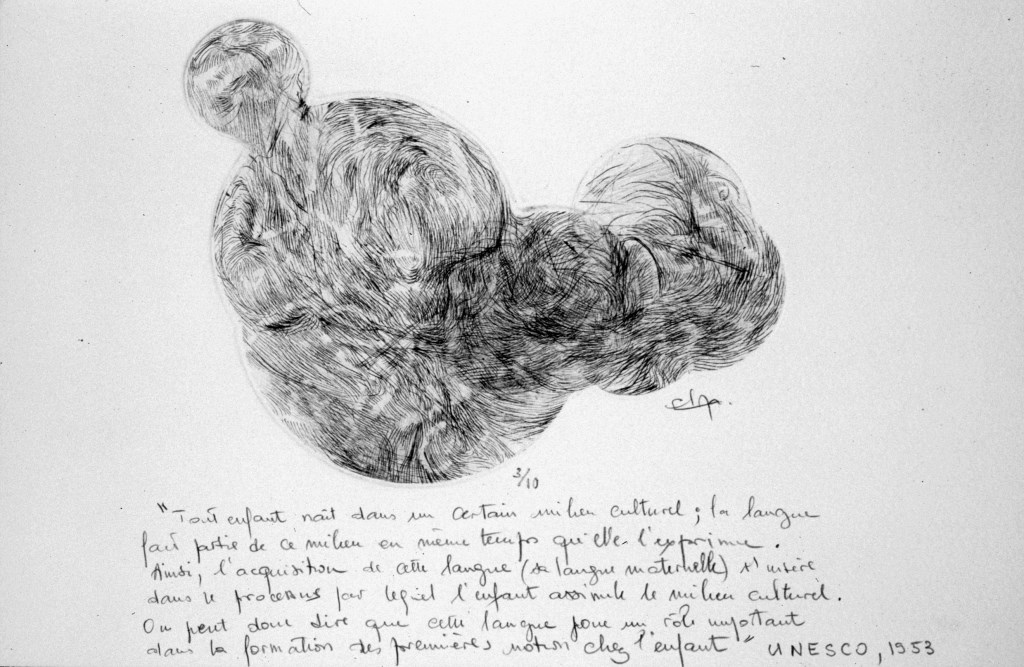 3/10
"Tout enfant naît dans un certain milieu culturel ; la langue
fait partie de ce milieu en même temps qu'elle l'exprime.
Ainsi, l'acquisition de cette langue (sa langue maternelle) s'insère
dans le processus par lequel l'enfant assimile le milieu culturel.
On peut donc dire que cette langue joue un rôle important
dans la formation des premières notion chez l'enfant" UNESCO, 1953